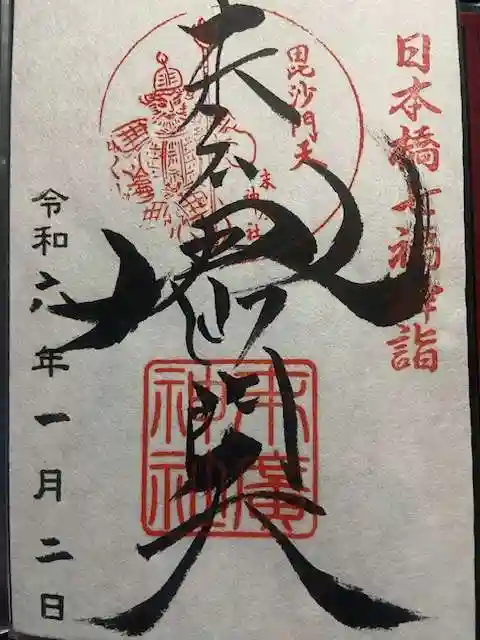 日本橋七福神詣
毘沙門天
末廣神社
奉拝
毘沙門天
末廣
神社
令和六年一月二日